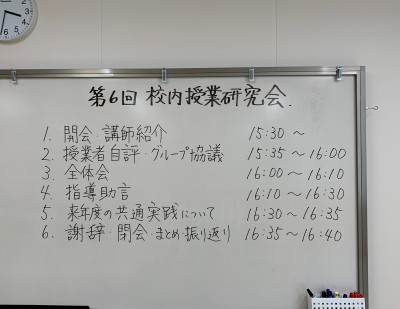 第6回 校内授業研究会.
1. 開会・講師紹介 15:30 ~
2. 授業者自評・グループ協議 15:35 ~ 16:00
3. 全体会 16:00 ~ 16:10
4. 指導助言 16:10 ~ 16:30
5. 来年度の共通実践について 16:30 ~ 16:35
6. 謝辞・閉会・まとめ・振り返り 16:35 ~ 16:40